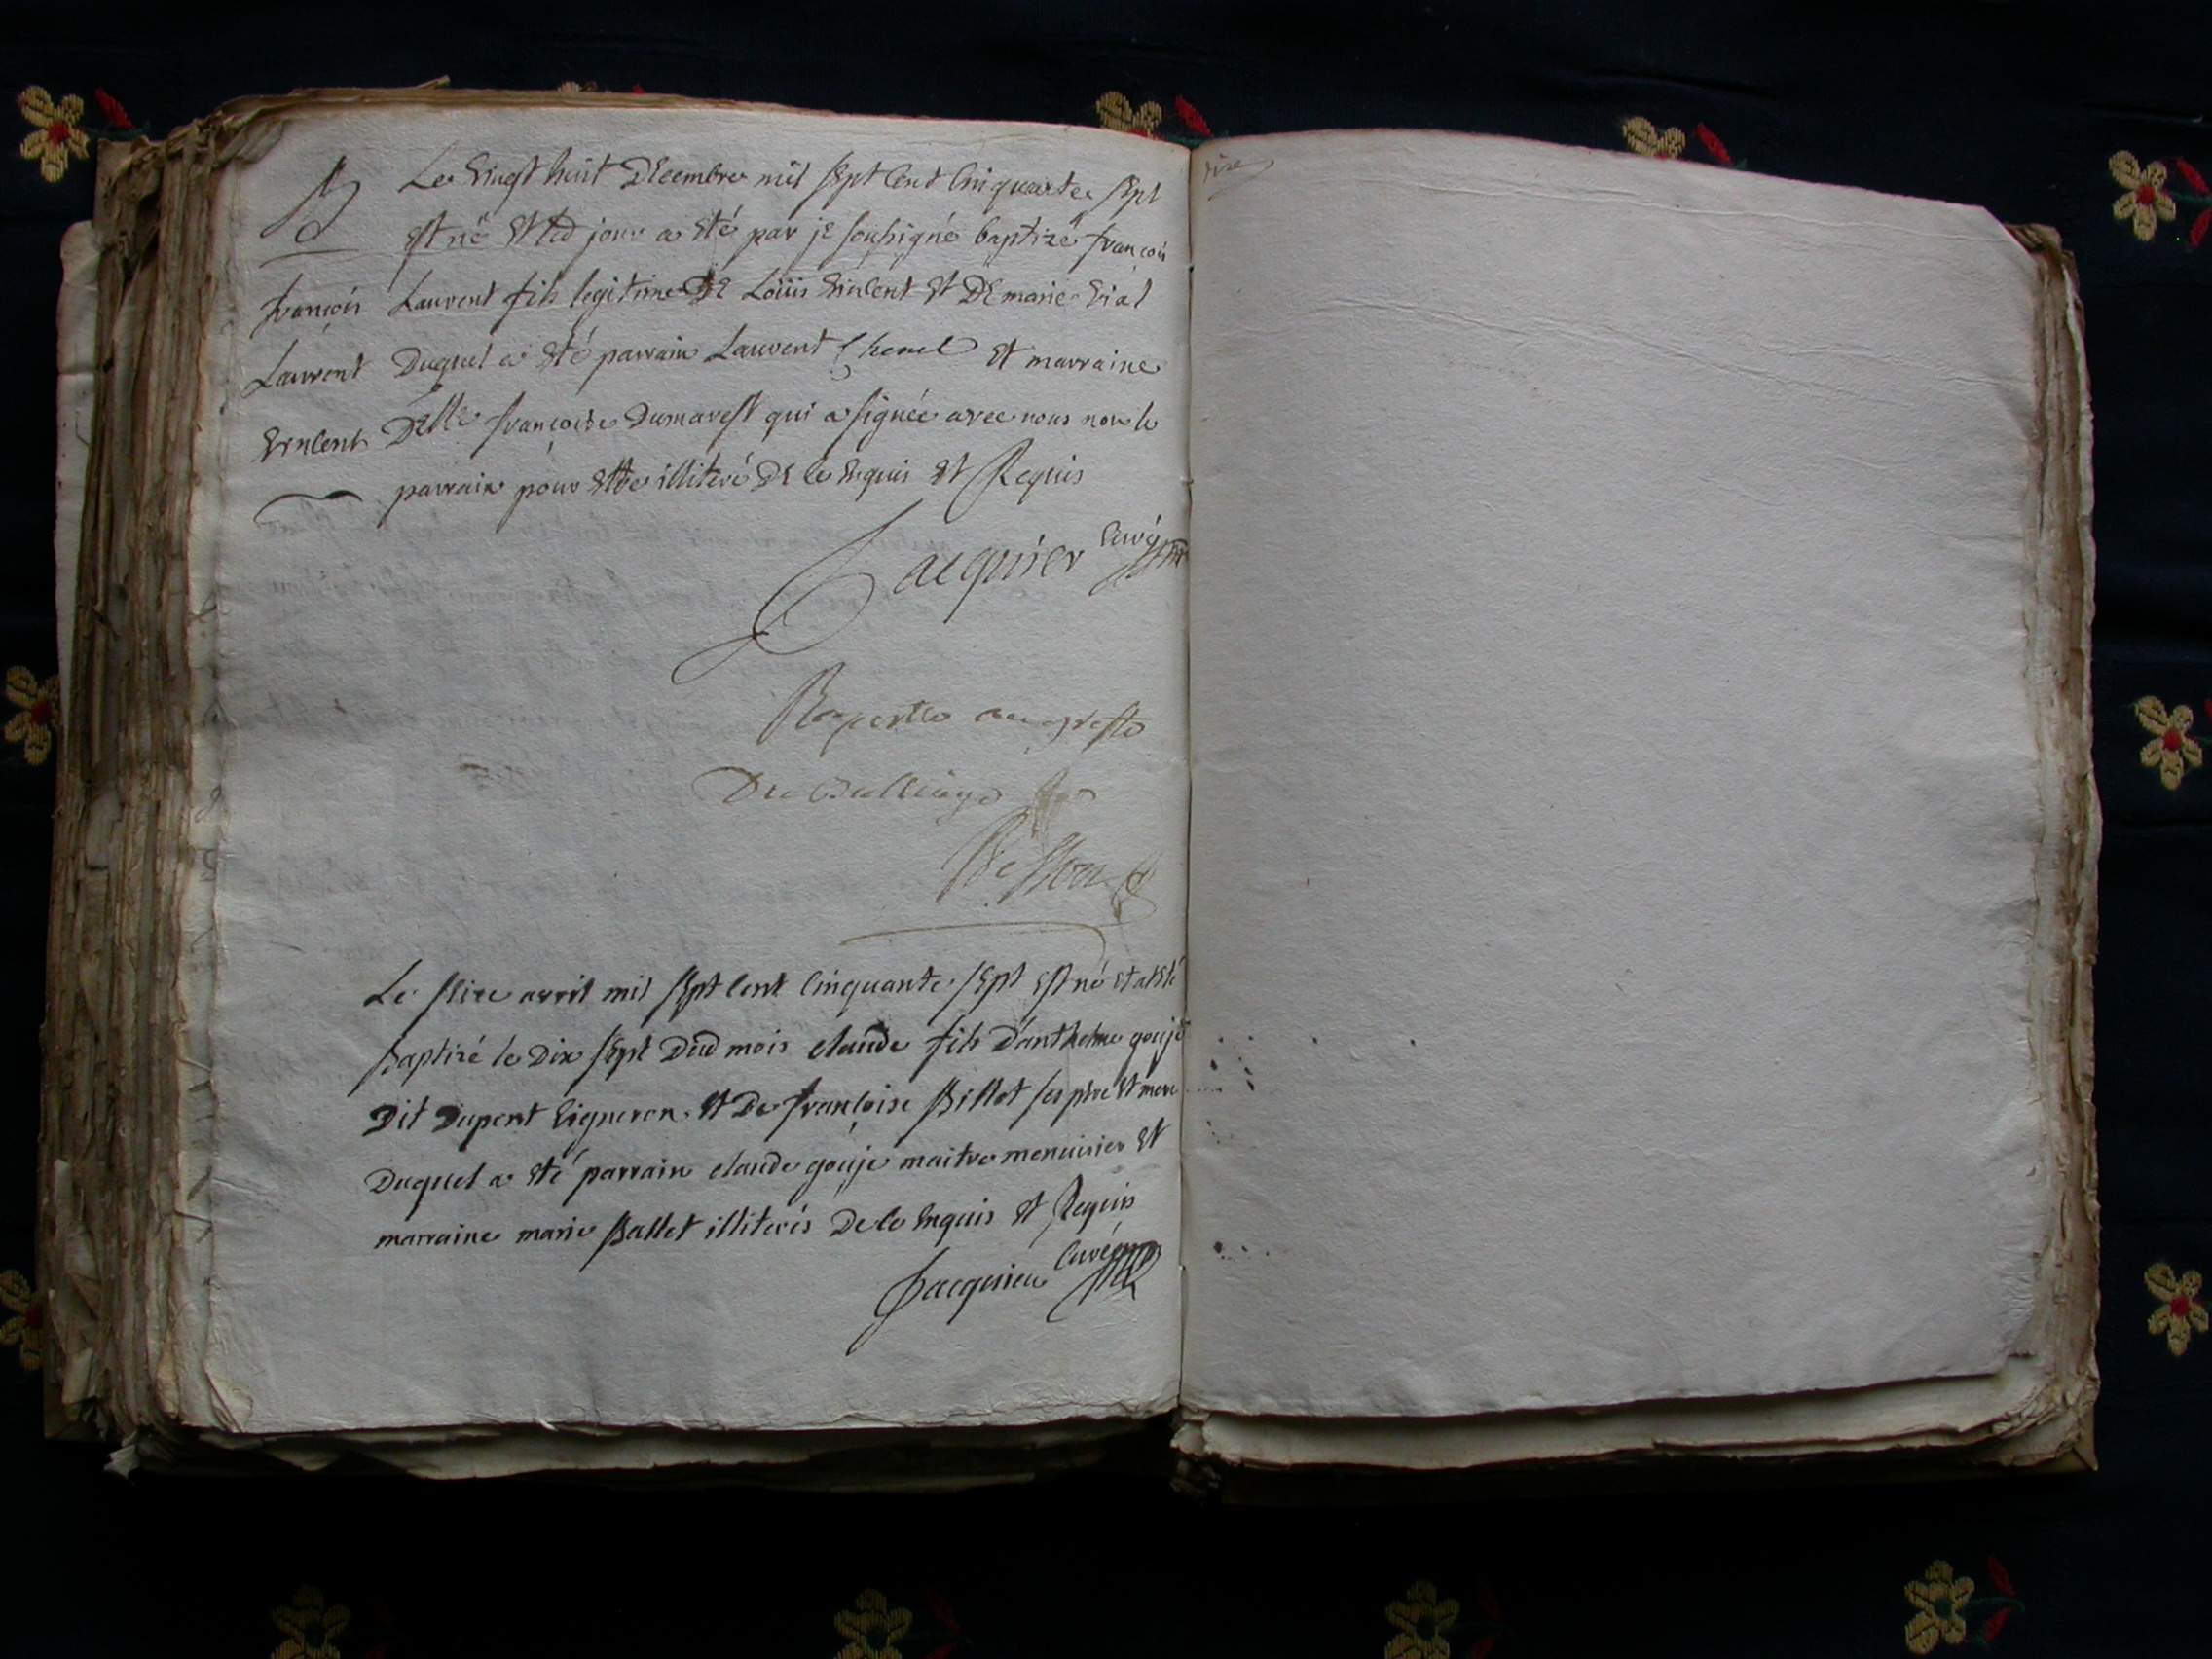 B
françois
Laurent
Vincent
Le Vingt huit Décembre mil sept Cent Cinquante sept
est né et led jour a eté par je soussigné baptizé françois
Laurent fils legitime de Loüis Vincent et de marie Vial
Duquel a eté parrain Laurent Chenel et marraine
Delle françoise Dumarest qui a signée avec nous non le
parrain pour estre illiteré de ce Enquis et Requis
Jacquier Curé
Raporté au greffe
Du Bailliage
Besson
Le seize avril mil sept Cent Cinquante sept est né et a eté
Baptizé le Dix sept Dud mois claude fils D'anthelme gouje
Dit Dupont Vigneron et De françoise Billet ses pere et mere
Duquel a eté parrain claude goüje maitre menuisier et
marraine marie Ballet illiterés De ce Enquis et Requis
Jacquier Curé